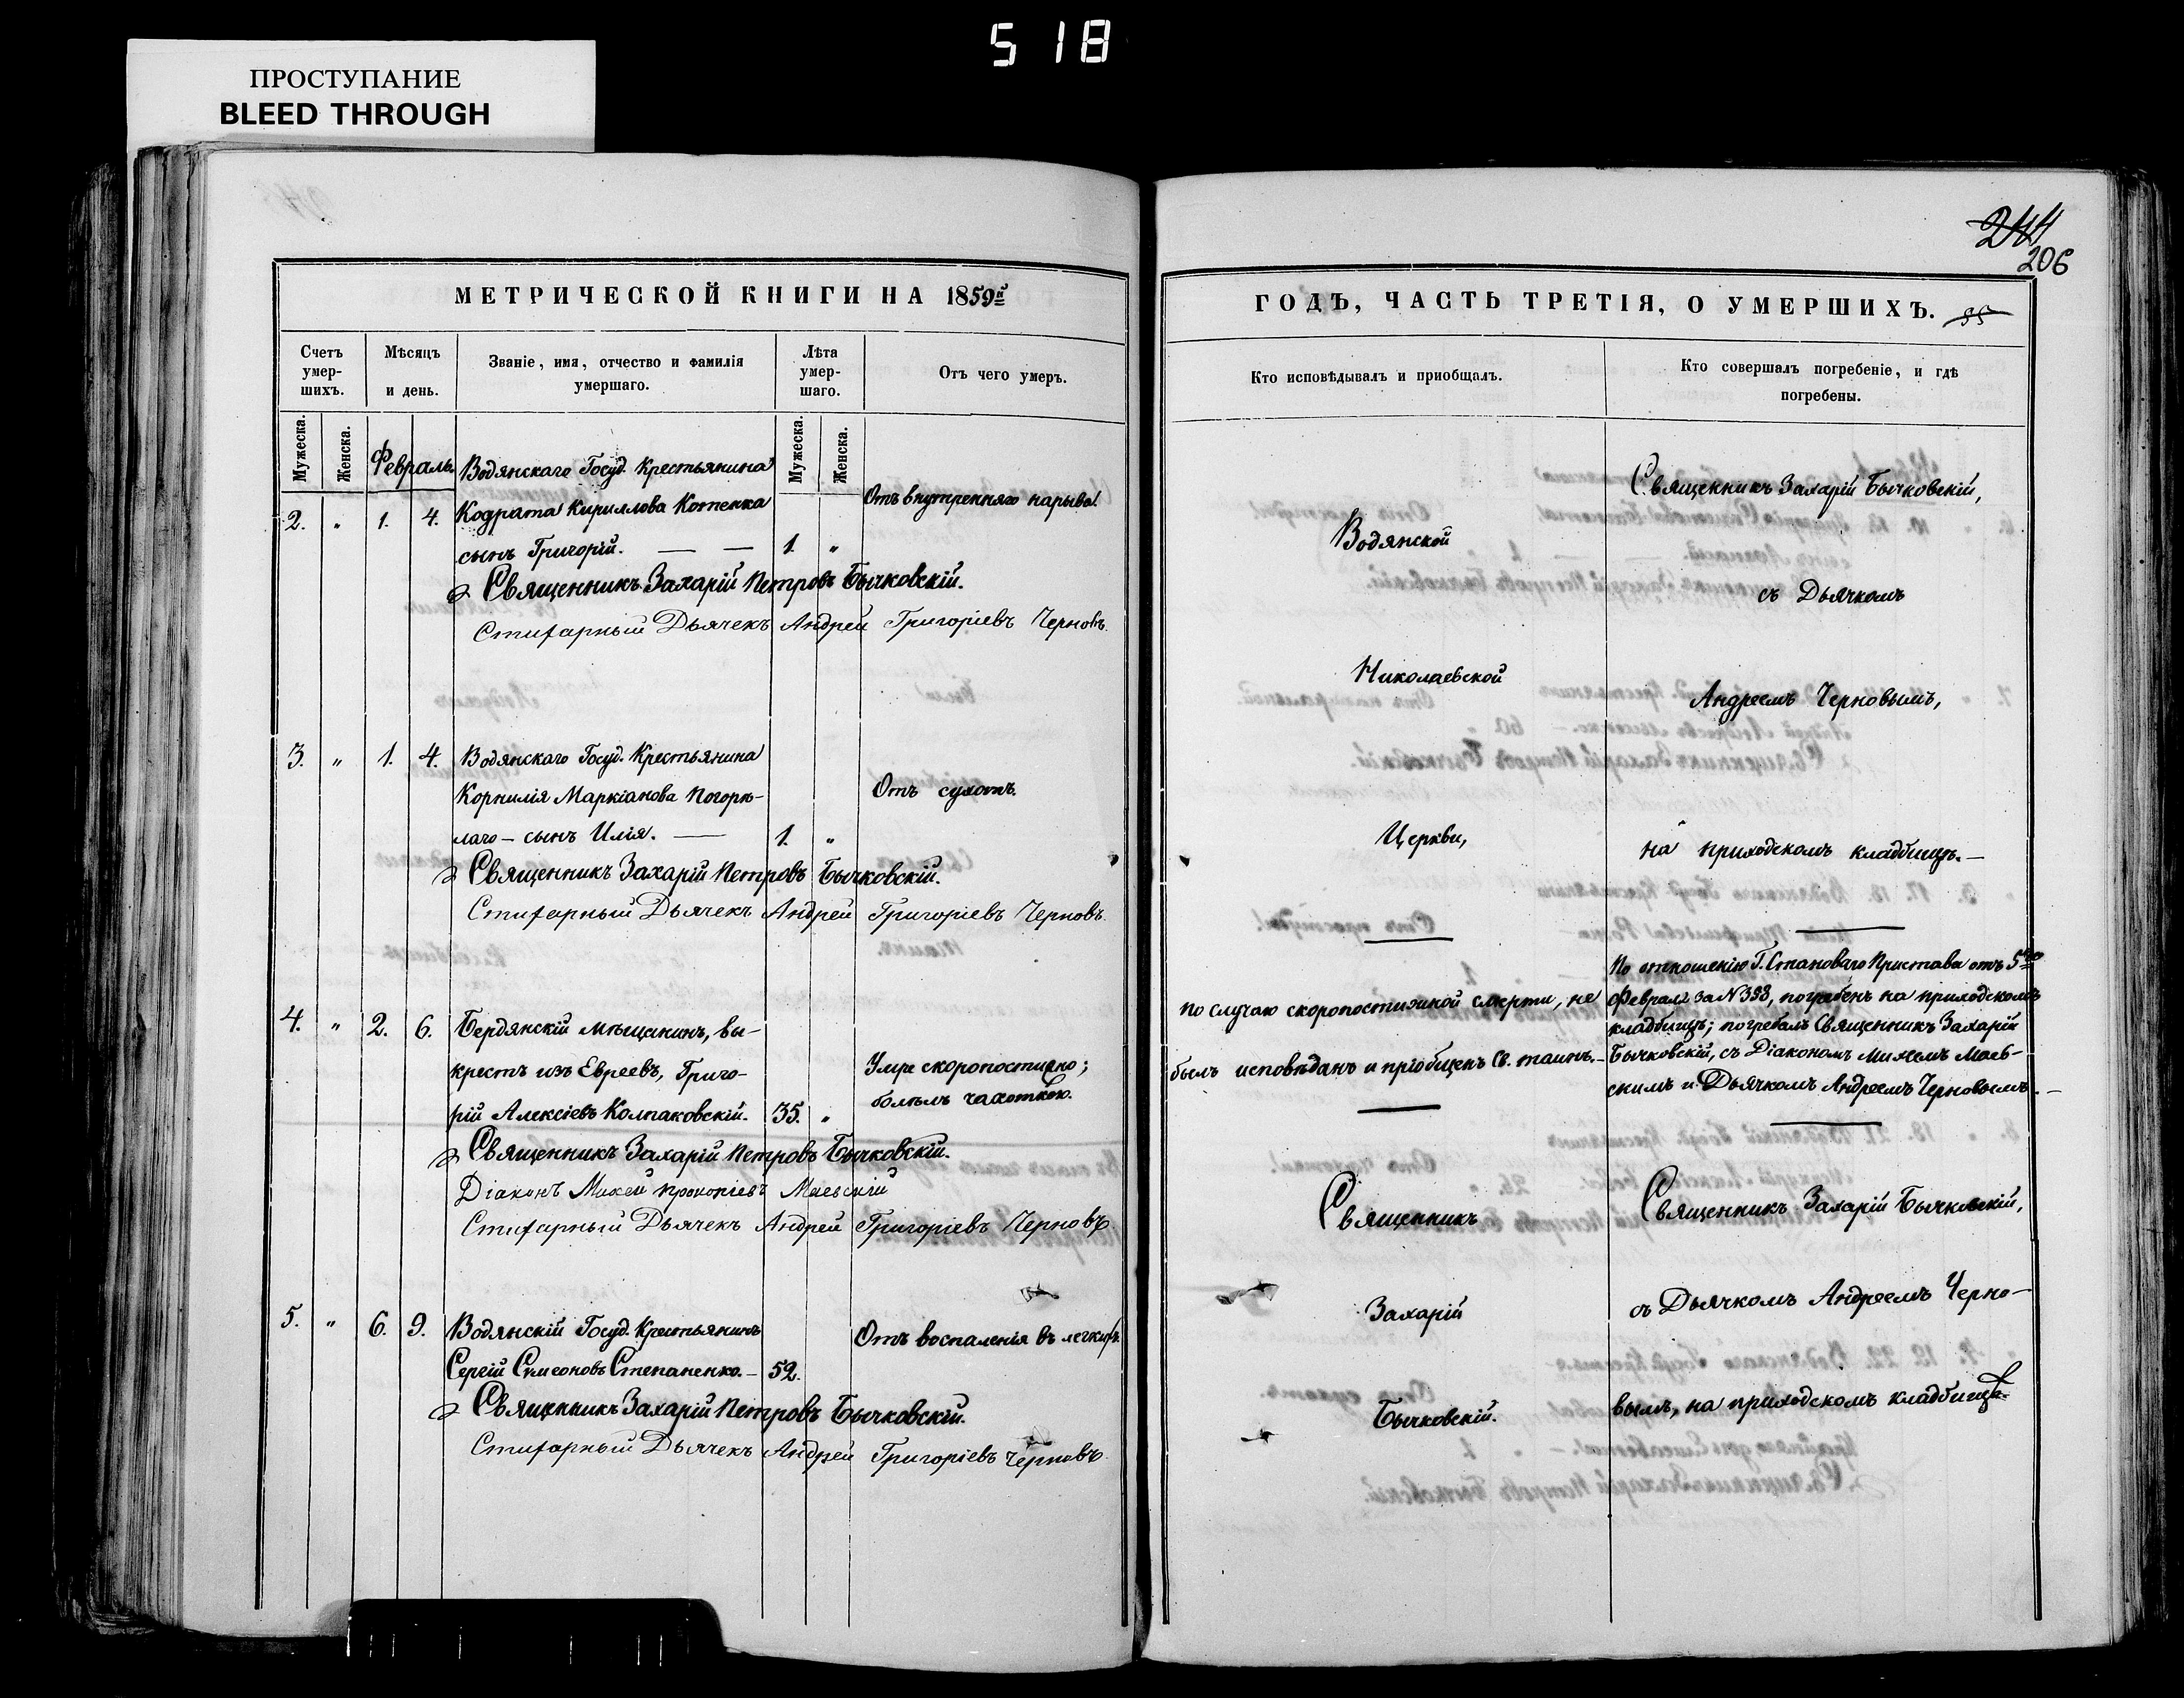 518
ПРОСТУПАНИЕ
BLEED THROUGH
МЕТРИЧЕСКОЙ КНИГИ НА 1859й
Счетъ умер-шихъ.
Мѣсяцъ и день.
Званіе, имя, отчество и фамилія умершаго.
Лѣта умер-шаго.
Отъ чего умеръ.
Мужеска.
Женска.
Мужеска.
Женска.
Февраль.
Водянскаго Госуд. Крестьянина
2. " 1. 4. Кодрата Кириллова Котенка
Отъ внутренняго нарыва.
сынъ Григорій. — — 1. "
Священникъ Захарій Петровъ Бычковскій.
Стихарный Дьячекъ Андрей Григоріевъ Черновъ.
3. " 1. 4. Водянскаго Госуд. Крестьянина
Корнилія Маркіанова Погорѣ-
Отъ сухотъ.
лаго – сынъ Илія. — 1. "
Священникъ Захарій Петровъ Бычковскій.
Стихарный Дьячекъ Андрей Григоріевъ Черновъ.
4. " 2. 6. Бердянскій мѣщанинъ, вы-
крестъ изъ Евреевъ, Григо-
Умре скоропостижно;
рій Алексіевъ Колпаковскій. 35. "
болѣлъ чахоткою.
Священникъ Захарій Петровъ Бычковскій.
Діаконъ Михей Прокопіевъ Маевскій
Стихарный Дьячекъ Андрей Григоріевъ Черновъ
5. " 6. 9. Водянскій Госуд. Крестьянинъ
Отъ воспаленія въ легкихъ.
Сергій Симеоновъ Степаненко. – 52.
Священникъ Захарій Петровъ Бычковскій.
Стихарный Дьячекъ Андрей Григоріевъ Черновъ
244
206
ГОДЪ, ЧАСТЬ ТРЕТІЯ, О УМЕРШИХЪ.
Кто исповѣдывалъ и приобщалъ.
Кто совершалъ погребеніе, и гдѣ погребены.
Водянской
Николаевской
Церкви,
Священникъ Захарій Бычковскій,
съ Дьячкомъ
Андреемъ Черновымъ,
на приходскомъ кладбищѣ. —
По случаю скоропостижной смерти, не
былъ исповѣданъ и пріобщенъ Св. таинъ. –
По отношенію Г. Становаго Пристава отъ 5го
Февраля за N 398, погребенъ на приходскомъ
кладбищѣ; погребалъ Священникъ Захарій
Бычковскій, съ Діакономъ Михеемъ Маев-
скимъ и Дьячкомъ Андреемъ Черновымъ. —
Священникъ
Захарій
Бычковскій.
Священникъ Захарій Бычковскій,
съ Дьячкомъ Андреемъ Черно-
вымъ, на приходскомъ кладбищѣ.